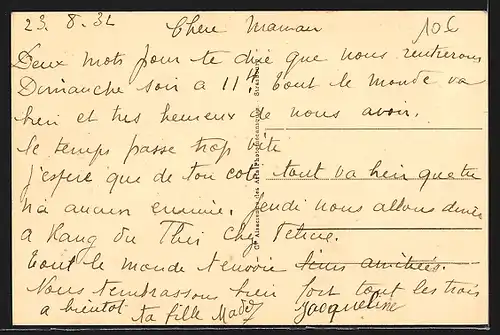 23. 8. 32 Chere Maman 10 C
Deux mots pour te dire que nous rentrerons
Dimanche soir a 11h tout le monde va
bien et tres heureux de nous avoir.
le temps passe trop vite
j'espere que de ton coté tout va bien que tu
n'a aucun ennuie. jeudi nous allons diner
a du chez
tout le monde t'envoie
Nous t'embrassons bien fort tout les trois
a bientot ta fille Mad Jacqueline